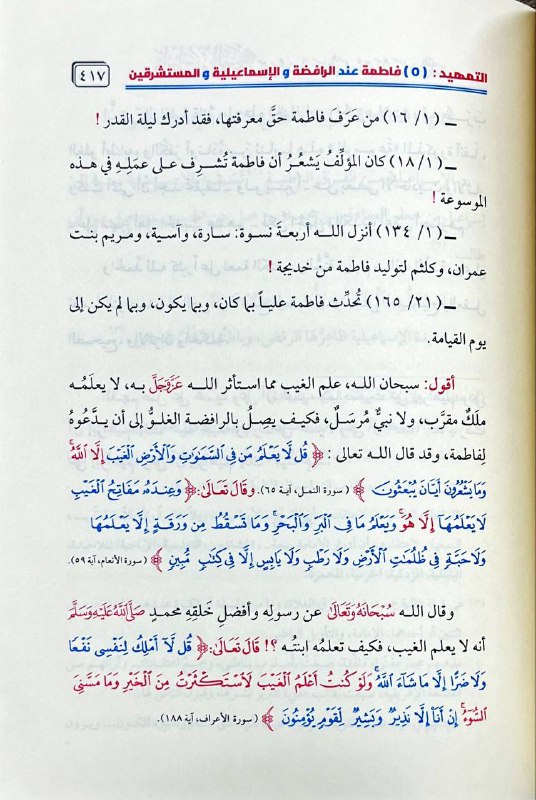 التمهيد : (٥) فاطمة عند الرافضة و الإسماعيلية و المستشرقين
٤١٧
ــ (١/ ١٦) من عَرَفَ فاطمة حقَّ معرفتها، فقد أدرك ليلة القدر !
ــ (١/ ١٨) كان المؤلِّفُ يَشعُرُ أن فاطمة تُشرِف على عمَلِهِ في هذه
الموسوعة !
ــ (١/ ١٣٤) أنزل اللـه أربعةَ نسوة: سارة، وآسية، ومريم بنت
عمران، وكلثم لتوليد فاطمة من خديجة !
ــ (٢١/ ١٦٥) تُحدِّث فاطمة علياً بما كان، وبما يكون، وبما لم يكن إلى
يوم القيامة.
أقول: سبحان اللـه، علم الغيب مما استأثر اللـه عَزَّوَجَلَّ به، لا يعلَمُه
ملَكٌ مقرَّب، ولا نبيٌّ مُرسَلٌ، فكيف يصِلُ بالرافضة الغلوُّ إلى أن يدَّعوهُ
لِفاطمة، وقد قال اللـه تعالى : ﴿ قُل لَّا يَعْلَمُ مَن فِي السَّمَٰوَٰتِ وَالْأَرْضِ الْغَيْبَ إِلَّا اللَّهُ ۚ
وَمَا يَشْعُرُونَ أَيَّانَ يُبْعَثُونَ ﴾ (سورة النمل، آية ٦٥). وقَالَ تَعَالَىٰ: ﴿ وَعِندَهُ مَفَاتِحُ الْغَيْبِ
لَا يَعْلَمُهَا إِلَّا هُوَ ۚ وَيَعْلَمُ مَا فِي الْبَرِّ وَالْبَحْرِ ۚ وَمَا تَسْقُطُ مِن وَرَقَةٍ إِلَّا يَعْلَمُهَا
وَلَا حَبَّةٍ فِي ظُلُمَٰتِ الْأَرْضِ وَلَا رَطْبٍ وَلَا يَابِسٍ إِلَّا فِي كِتَٰبٍ مُّبِينٍ ﴾ (سورة الأنعام، آية ٥٩).
وقال اللـه سُبْحَانَهُ وَتَعَالَىٰ عن رسوله وأفضلِ خَلقِهِ محمدٍ صَلَّى اللَّهُ عَلَيْهِ وَسَلَّمَ
أنه لا يعلم الغيب، فكيف تعلمُه ابنتُه ؟! قَالَ تَعَالَىٰ: ﴿ قُل لَّا أَمْلِكُ لِنَفْسِي نَفْعًا
وَلَا ضَرًّا إِلَّا مَا شَاءَ اللَّهُ ۚ وَلَوْ كُنتُ أَعْلَمُ الْغَيْبَ لَاسْتَكْثَرْتُ مِنَ الْخَيْرِ وَمَا مَسَّنِيَ
السُّوءُ ۚ إِنْ أَنَا إِلَّا نَذِيرٌ وَبَشِيرٌ لِّقَوْمٍ يُؤْمِنُونَ ﴾ (سورة الأعراف، آية ١٨٨).